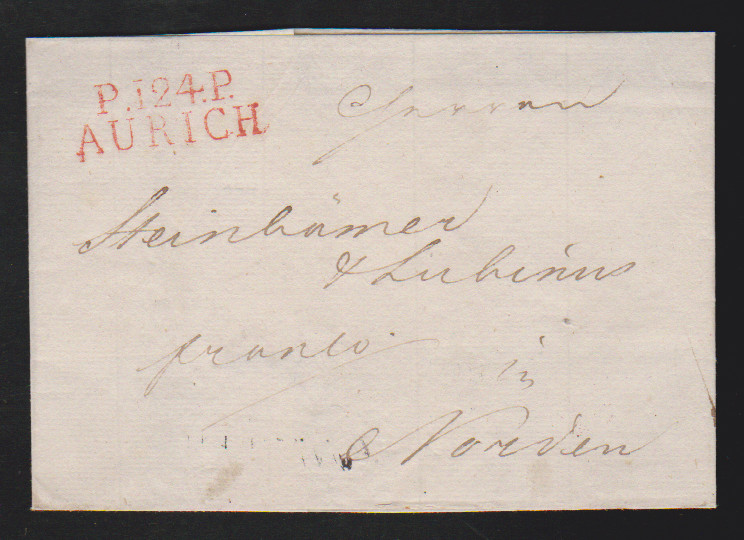 P.124.P.
AURICH
Herren
Steinbömer
& Lubinus
franco.
in
Norden